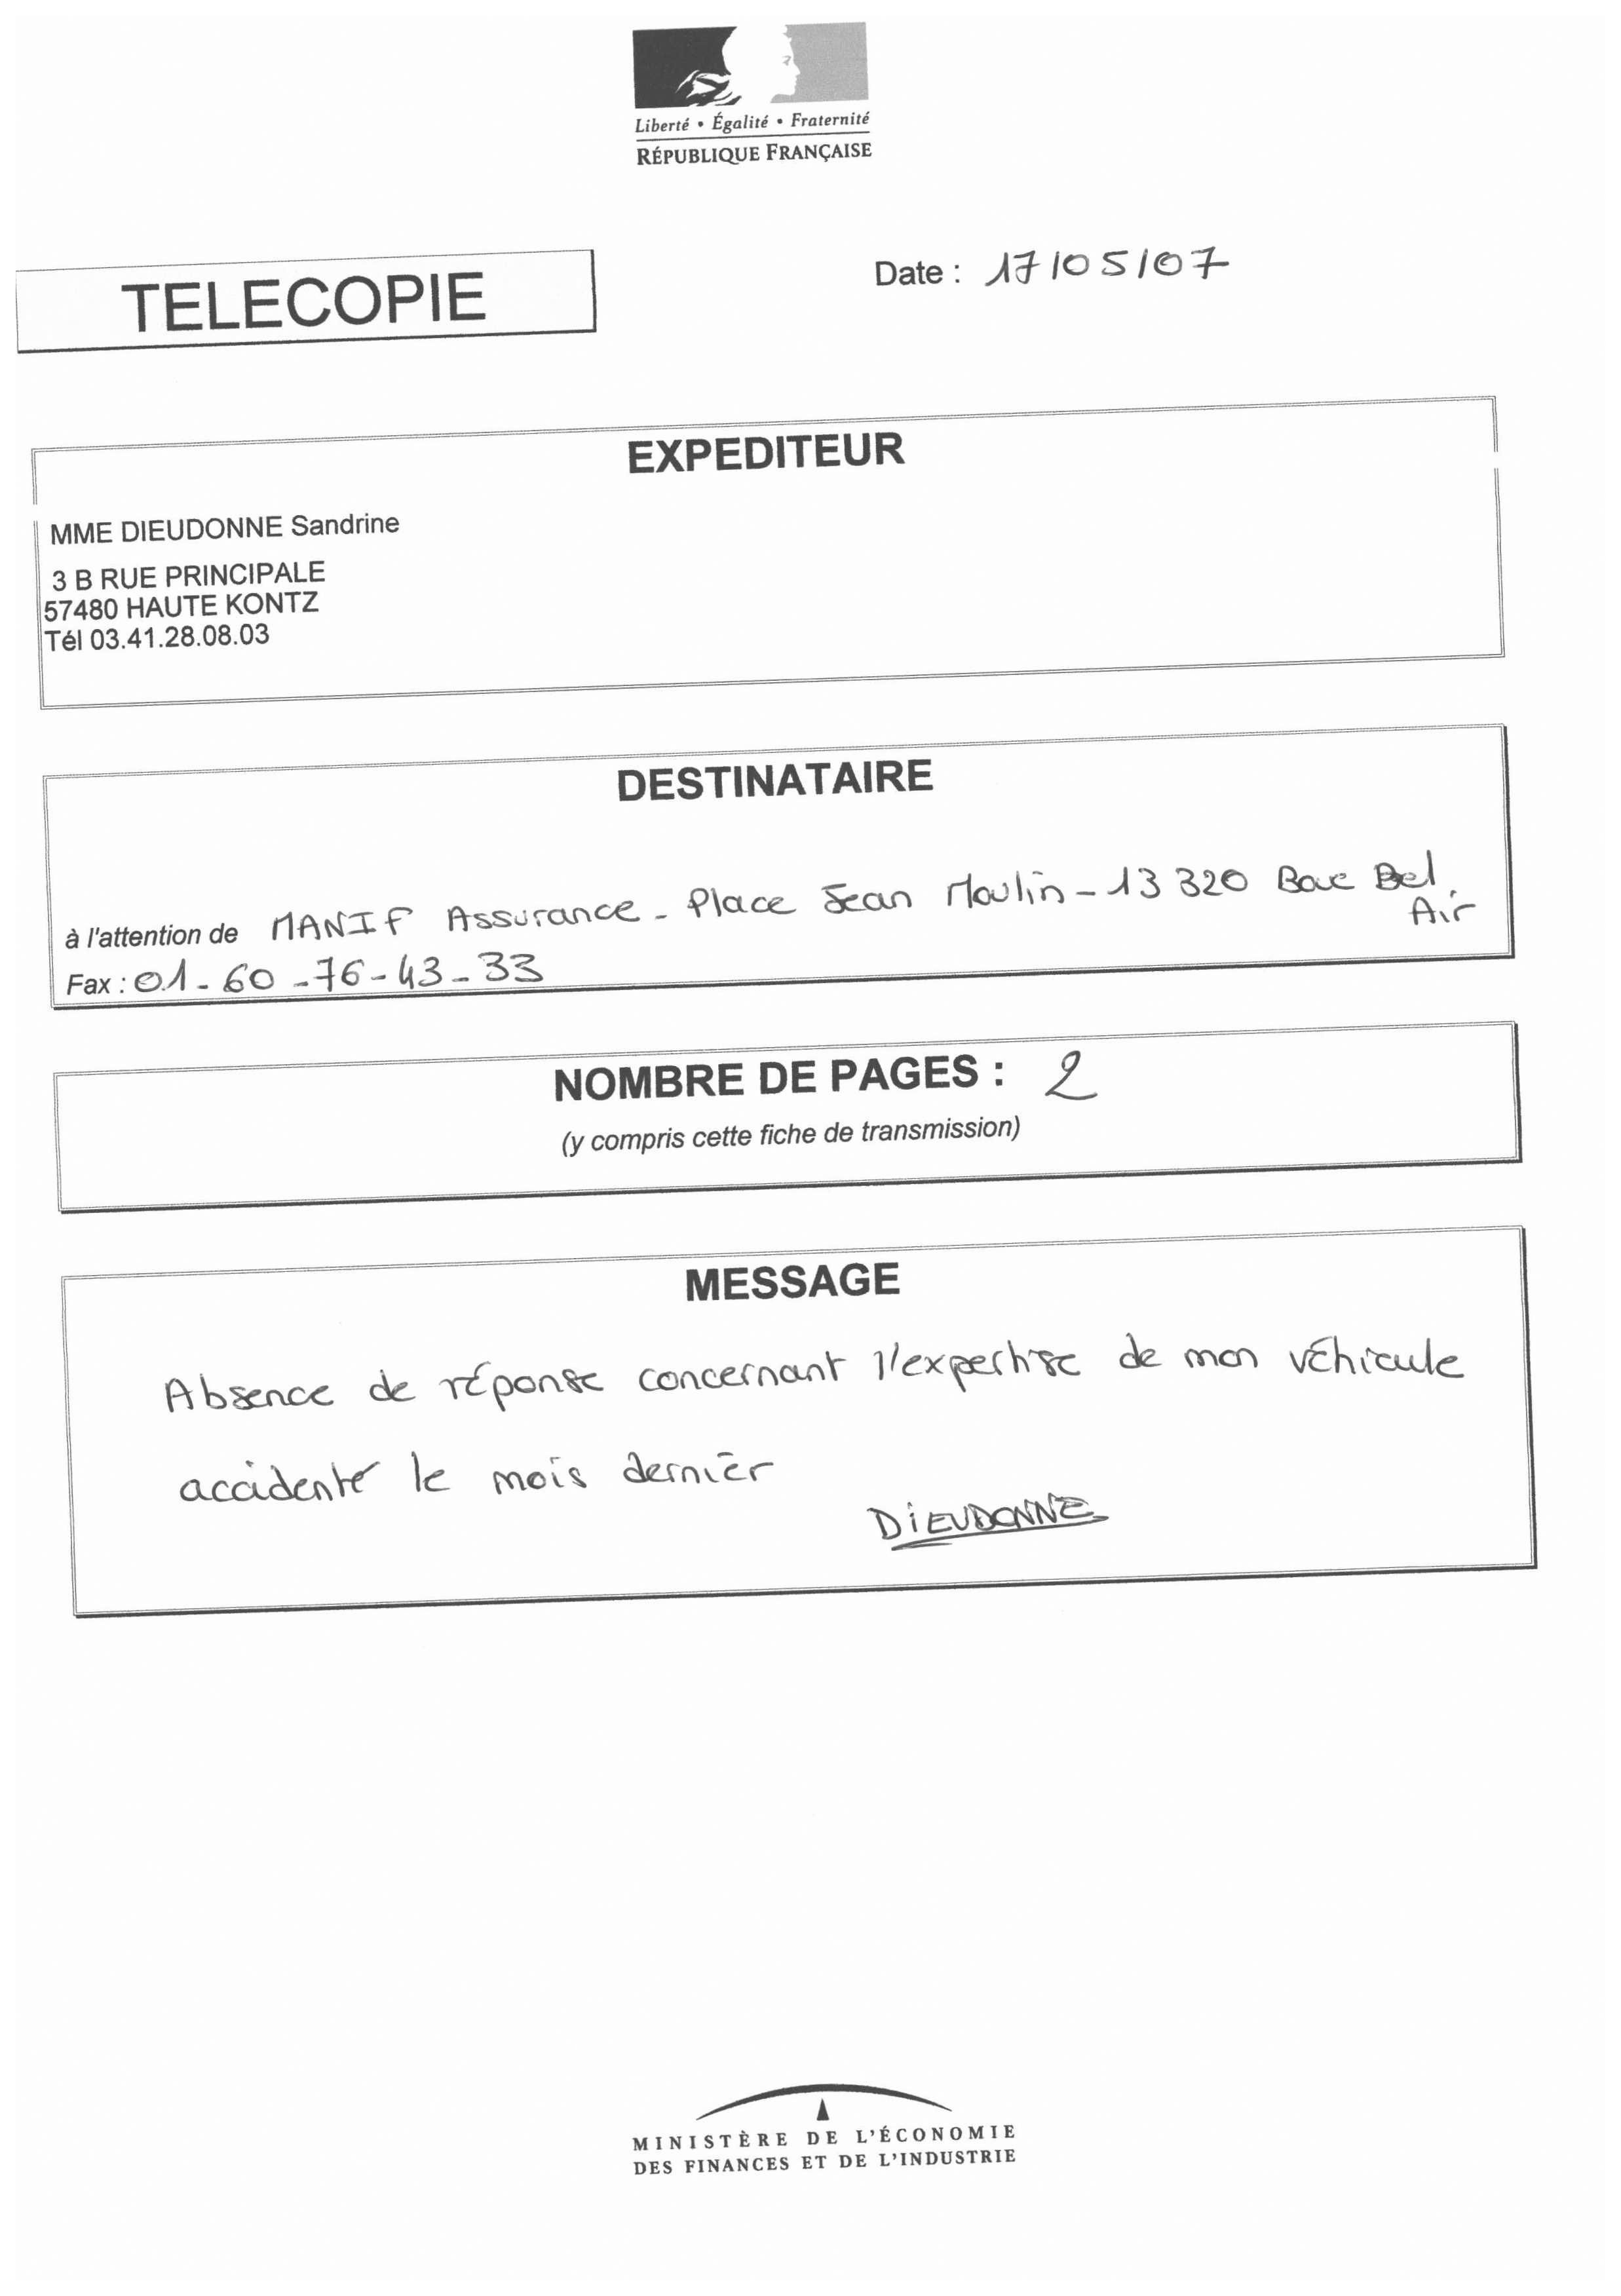 Liberté • Égalité • Fraternité
RÉPUBLIQUE FRANÇAISE
TELECOPIE
Date : 17/05/07
EXPEDITEUR
MME DIEUDONNE Sandrine
3 B RUE PRINCIPALE
57480 HAUTE KONTZ
Tél 03.41.28.08.03
DESTINATAIRE
à l'attention de MANIF Assurance - Place Jean Moulin - 13 320 Bouc Bel
Air
Fax : 01-60-76-43-33
NOMBRE DE PAGES : 2
(y compris cette fiche de transmission)
MESSAGE
Absence de réponse concernant l'expertise de mon véhicule
accidenté le mois dernier
DIEUDONNE
MINISTÈRE DE L'ÉCONOMIE
DES FINANCES ET DE L'INDUSTRIE